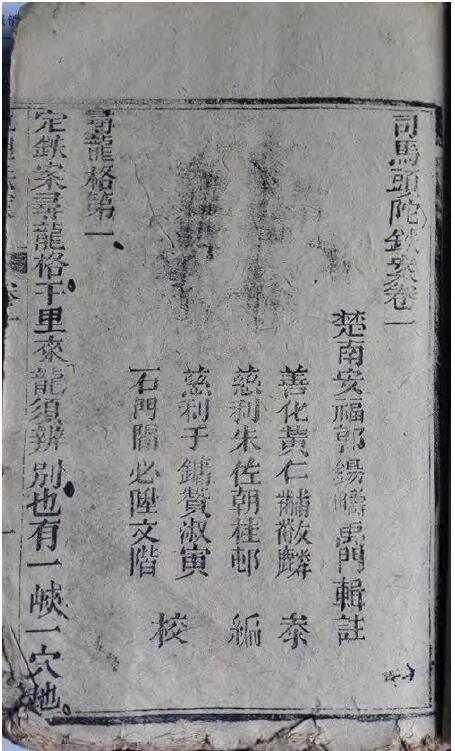 司馬頭陀鉄案卷一
楚南安福郭錫疇禹門輯註
善化黄仁黼敬麟 叅
慈利朱佐朝桂邨 編
慈利于鏞贊淑寅
石門閻必陞文階 校
尋龍格第一、
定鉄案尋龍格千里來龍須辨別也有一峽一穴地。